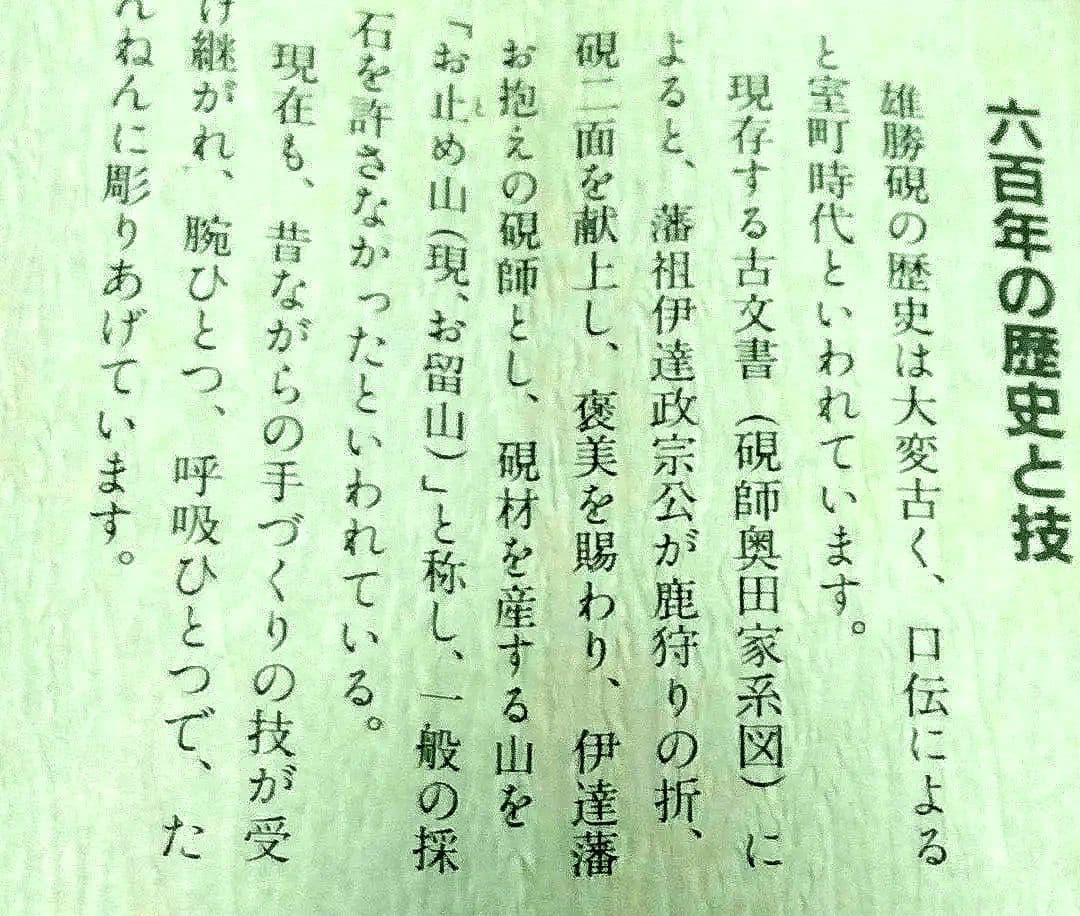 六百年の歴史と技
雄勝硯の歴史は大変古く、口伝による
と室町時代といわれています。
現存する古文書(硯師奥田家系図)に
よると、藩祖伊達政宗公が鹿狩りの折、
硯二面を献上し、褒美を賜わり、伊達藩
お抱えの硯師とし、硯材を産する山を
「お止め山(現、お留山)」と称し、一般の採
石を許さなかったといわれている。
現在も、昔ながらの手づくりの技が受
け継がれ、腕ひとつ、呼吸ひとつで、た
んねんに彫りあげています。